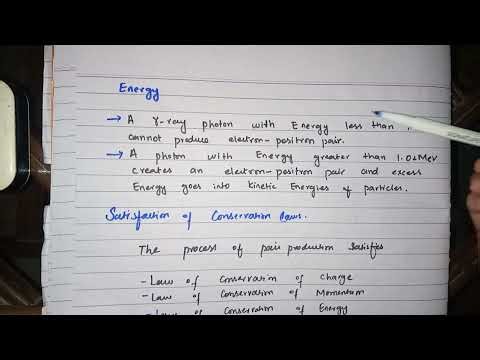 Energy
→ A γ-ray photon with Energy less than 1.
cannot produce electron-positron pair.
→ A photon with Energy greater than 1.02 MeV
creates an electron-positron pair and excess
Energy goes into kinetic Energies of particles.
Satisfaction of Conservation laws.
The process of pair production satisfies
- Law of Conservation of Charge
- Law of Conservation of Momentum
- Law of Conservation of Energy